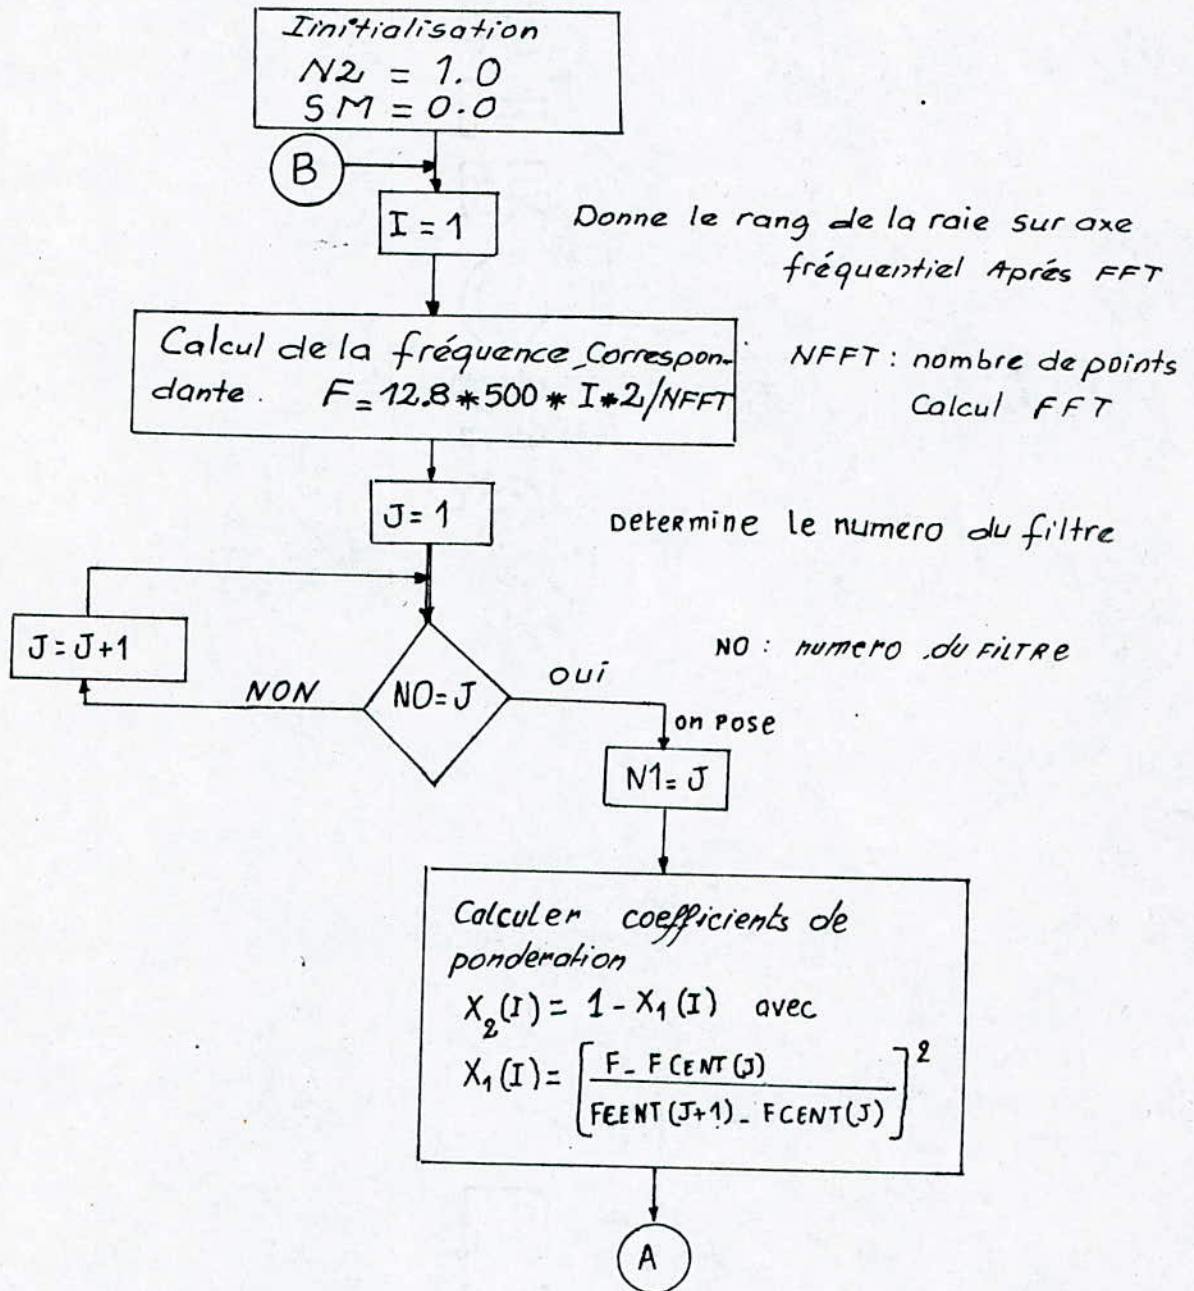 Iinitialisation
N2 = 1.0
SM = 0.0
B
I = 1
Donne le rang de la raie sur axe
fréquentiel Aprés FFT
Calcul de la fréquence_Correspon-
dante. F = 12.8 * 500 * I * 2/NFFT
NFFT : nombre de points
Calcul FFT
J = 1
Determine le numero du filtre
J = J+1
NO : numero du FILTRE
NON
NO = J
OUI
on Pose
N1 = J
Calculer coefficients de
ponderation
X₂(I) = 1 - X₁(I) avec
X₁(I) = [ F - FCENT(J) / FEENT(J+1) - FCENT(J) ]²
A